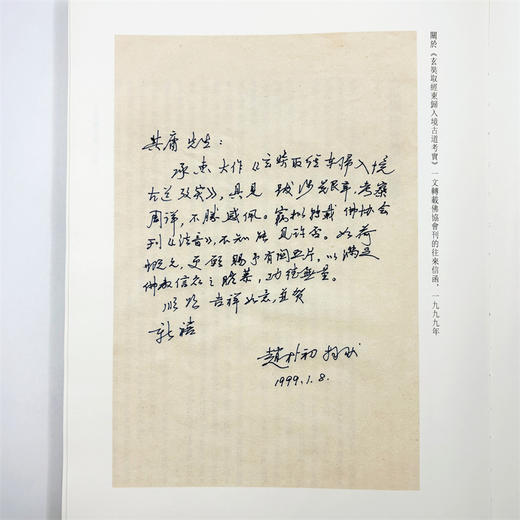 其庸先生：
承惠大作《玄奘取经东归入境
古道考实》，具见跋涉艰辛，考察
周详，不胜感佩。 拟转载佛协会
刊《法音》，不知能见许否。如荷
慨允，更愿赐予有关照片，以满足
佛教信众之瞻慕，功德无量。
顺颂吉祥如意，并贺
新禧
趙朴初
1999.1.8.
關於《玄奘取經東歸入境古道考實》一文轉載佛協會刊的往來信函，一九九九年